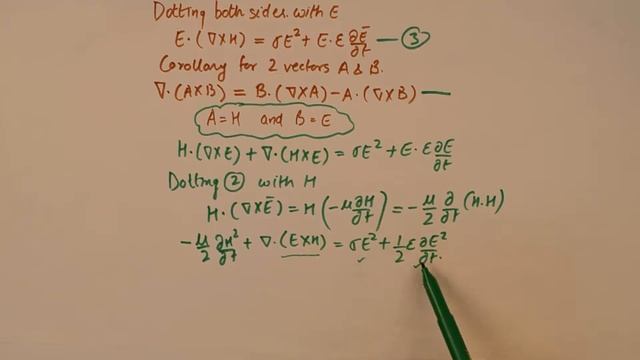 Dotting both sides with E
E·(∇×H) = σE² + E·ε ∂Ē/∂t — ③
Corollary for 2 vectors A & B.
∇·(A×B) = B·(∇×A) − A·(∇×B) —
A = H and B = E
H·(∇×E) + ∇·(H×E) = σE² + E·ε ∂E/∂t
Dotting ② with H
H·(∇×Ē) = H(−μ ∂H/∂t) = −μ/2 ∂/∂t (H.H)
−μ/2 ∂H²/∂t + ∇·(E×H) = σE² + 1/2 ε ∂E²/∂t.